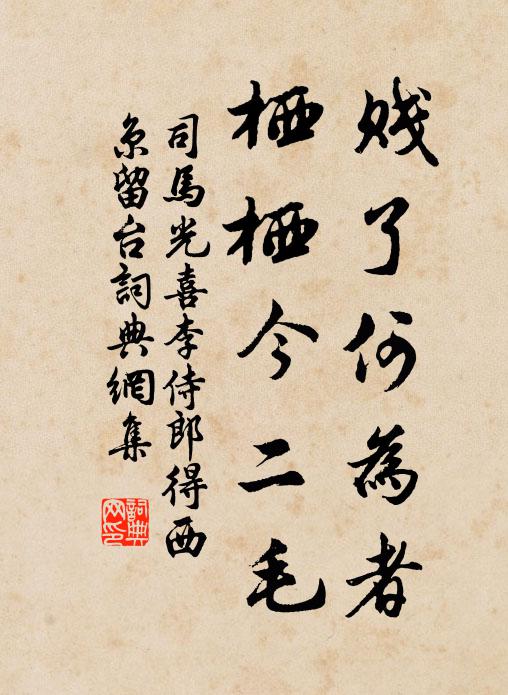 賤了何為者
栖栖今二毛
司馬光喜李侍郎得西
京留台詞典網集
詞典
网印